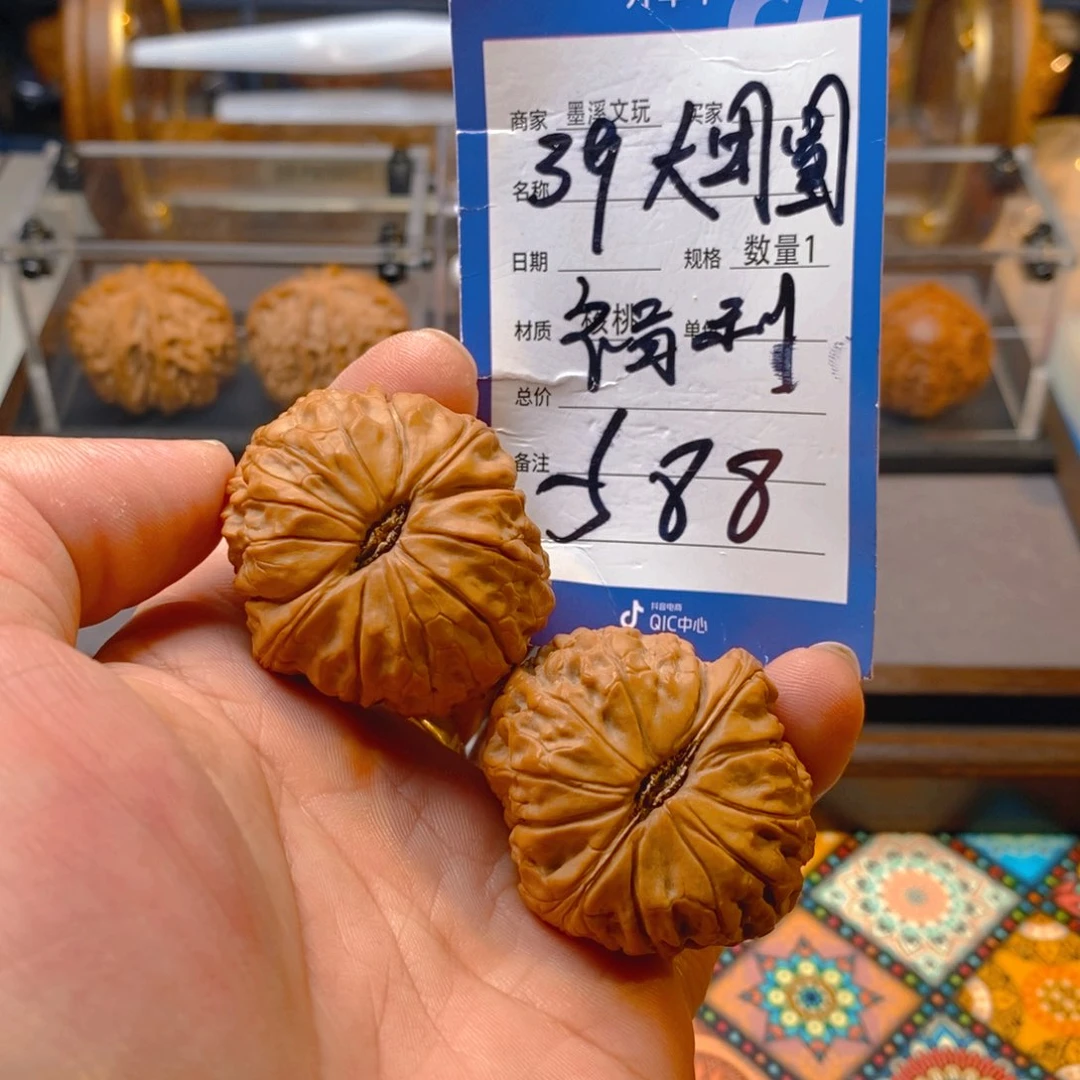 商家 墨溪文玩 买家
39大团圆
名称
日期 规格 数量1
材质 核桃 单价
福利
总价
备注 588
抖音电商
QIC中心